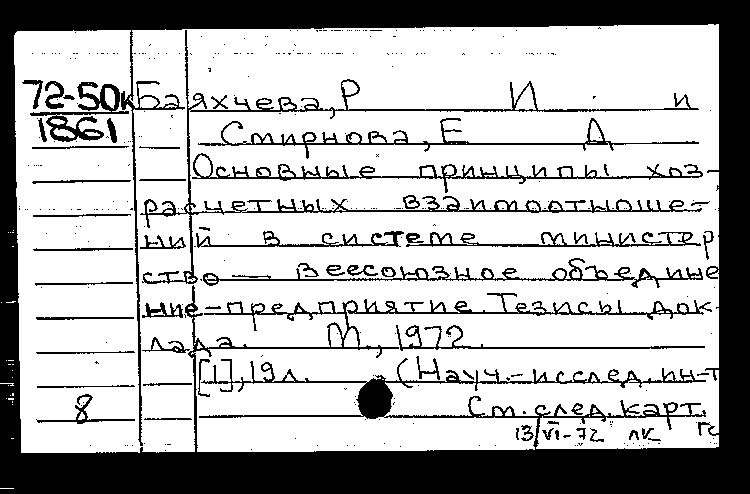 72-50к Баяхчева, Р И и
1861 Смирнова, Е Д
Основные принципы хоз-
расчетных взаимоотноше-
ний в системе министер
ство — Всесоюзное объедине
ние-предприятие. Тезисы док-
лада. М., 1972.
[1], 19л. (Науч.-исслед. ин-т
8 См. след. карт.
13/VI-72 ЛК ГС